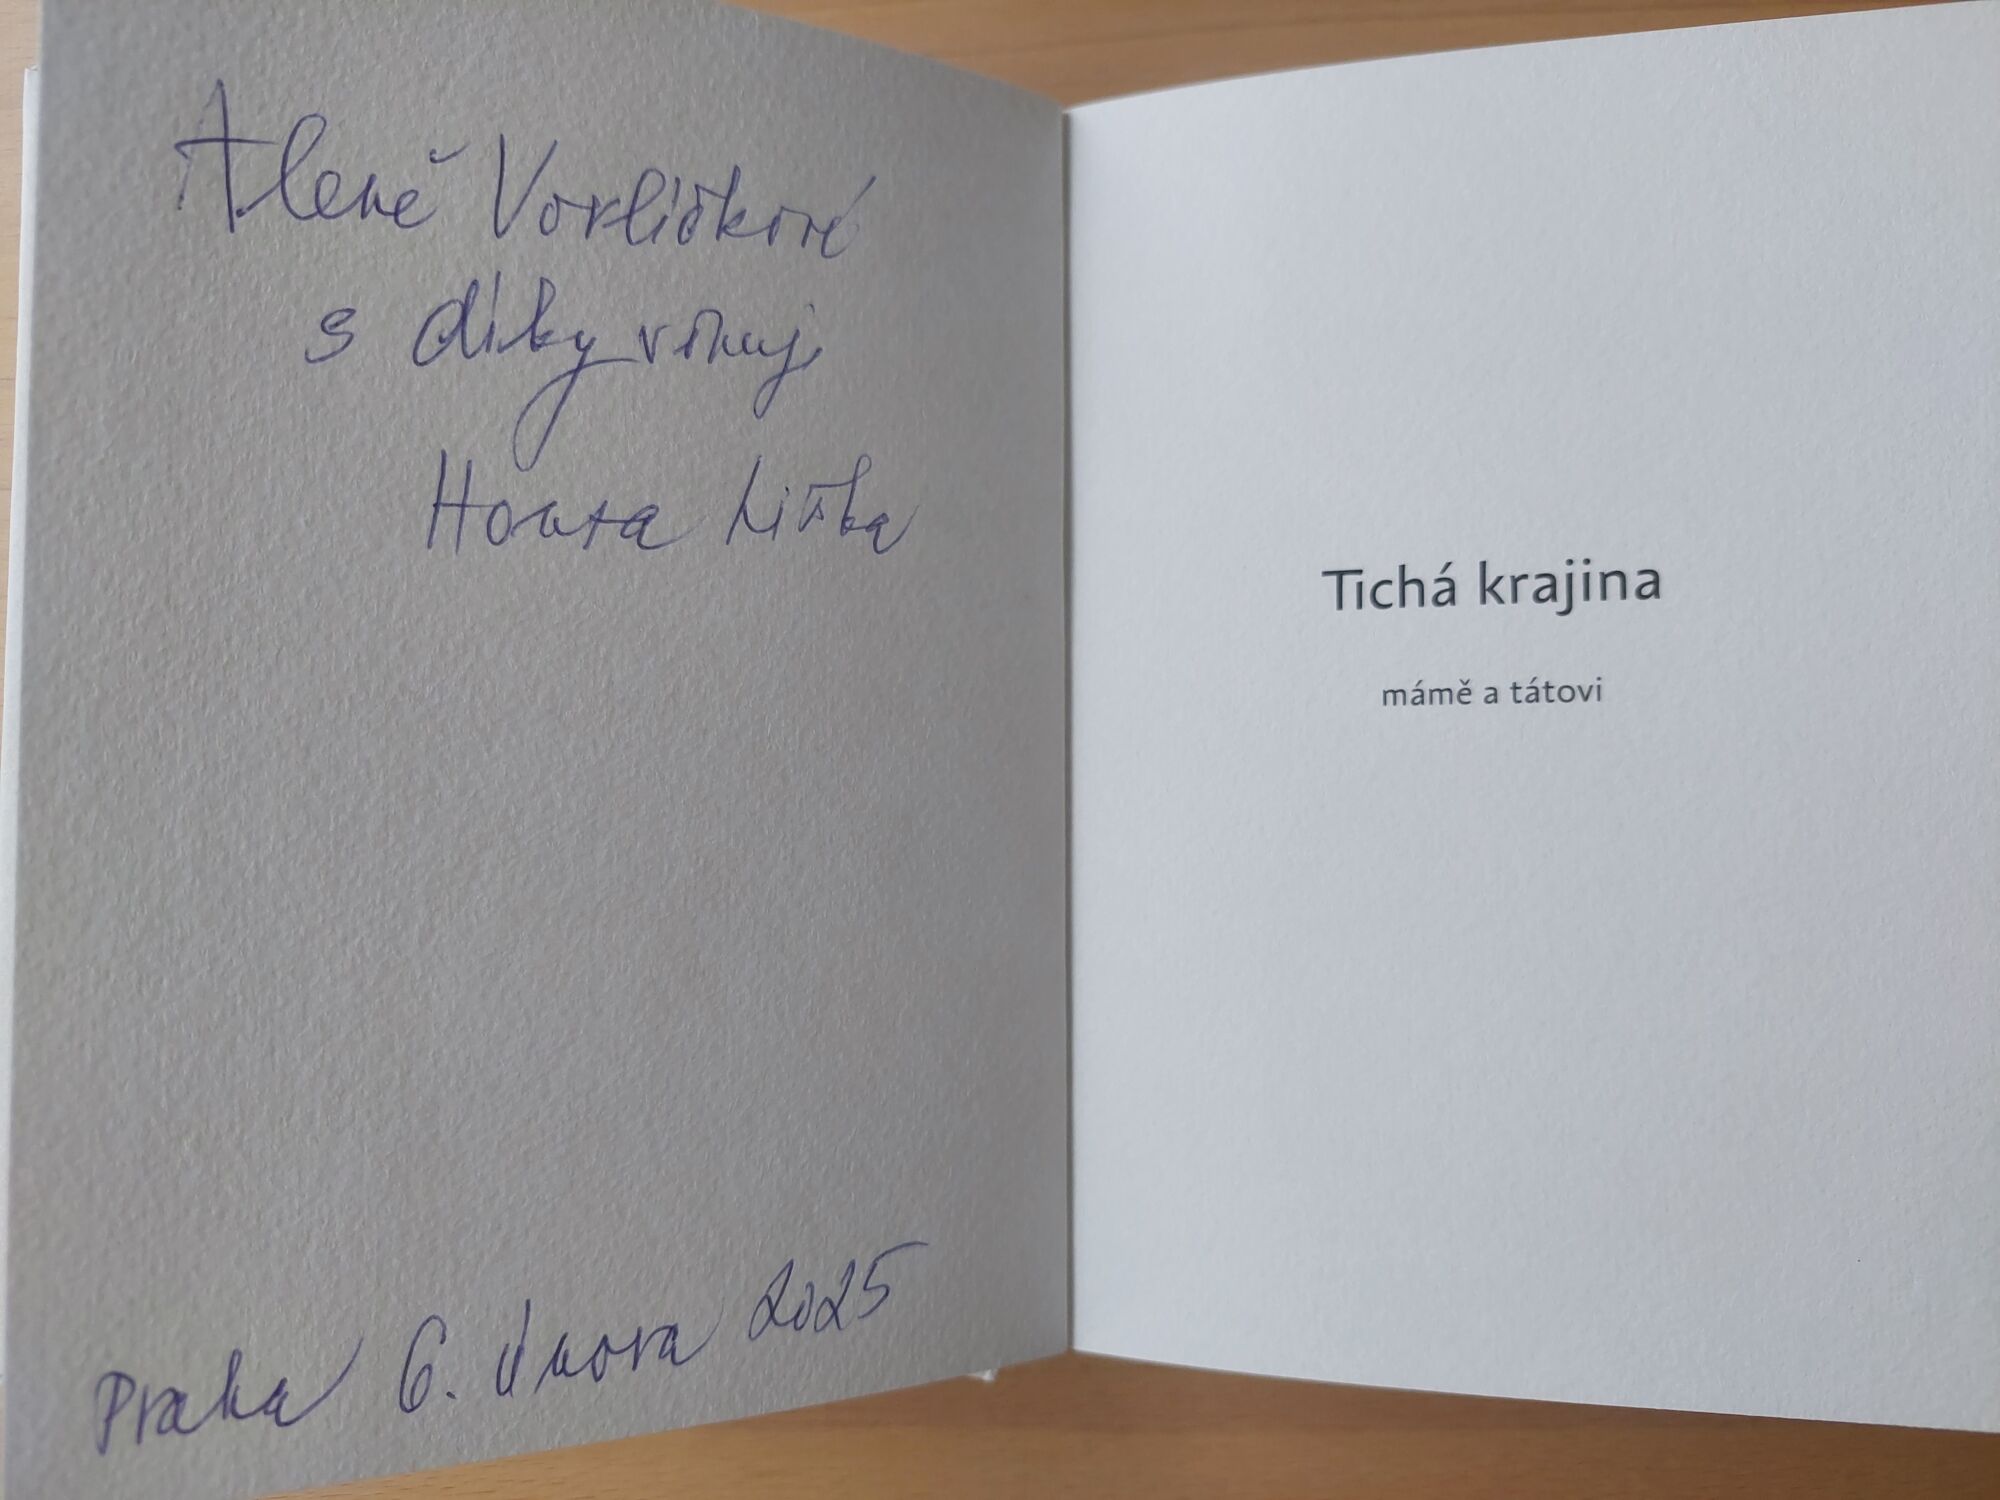 Aleně Vorlíčkové
s díky věnuj
Honza Liška
Praha 6. února 2025
Tichá krajina
mámě a tátovi